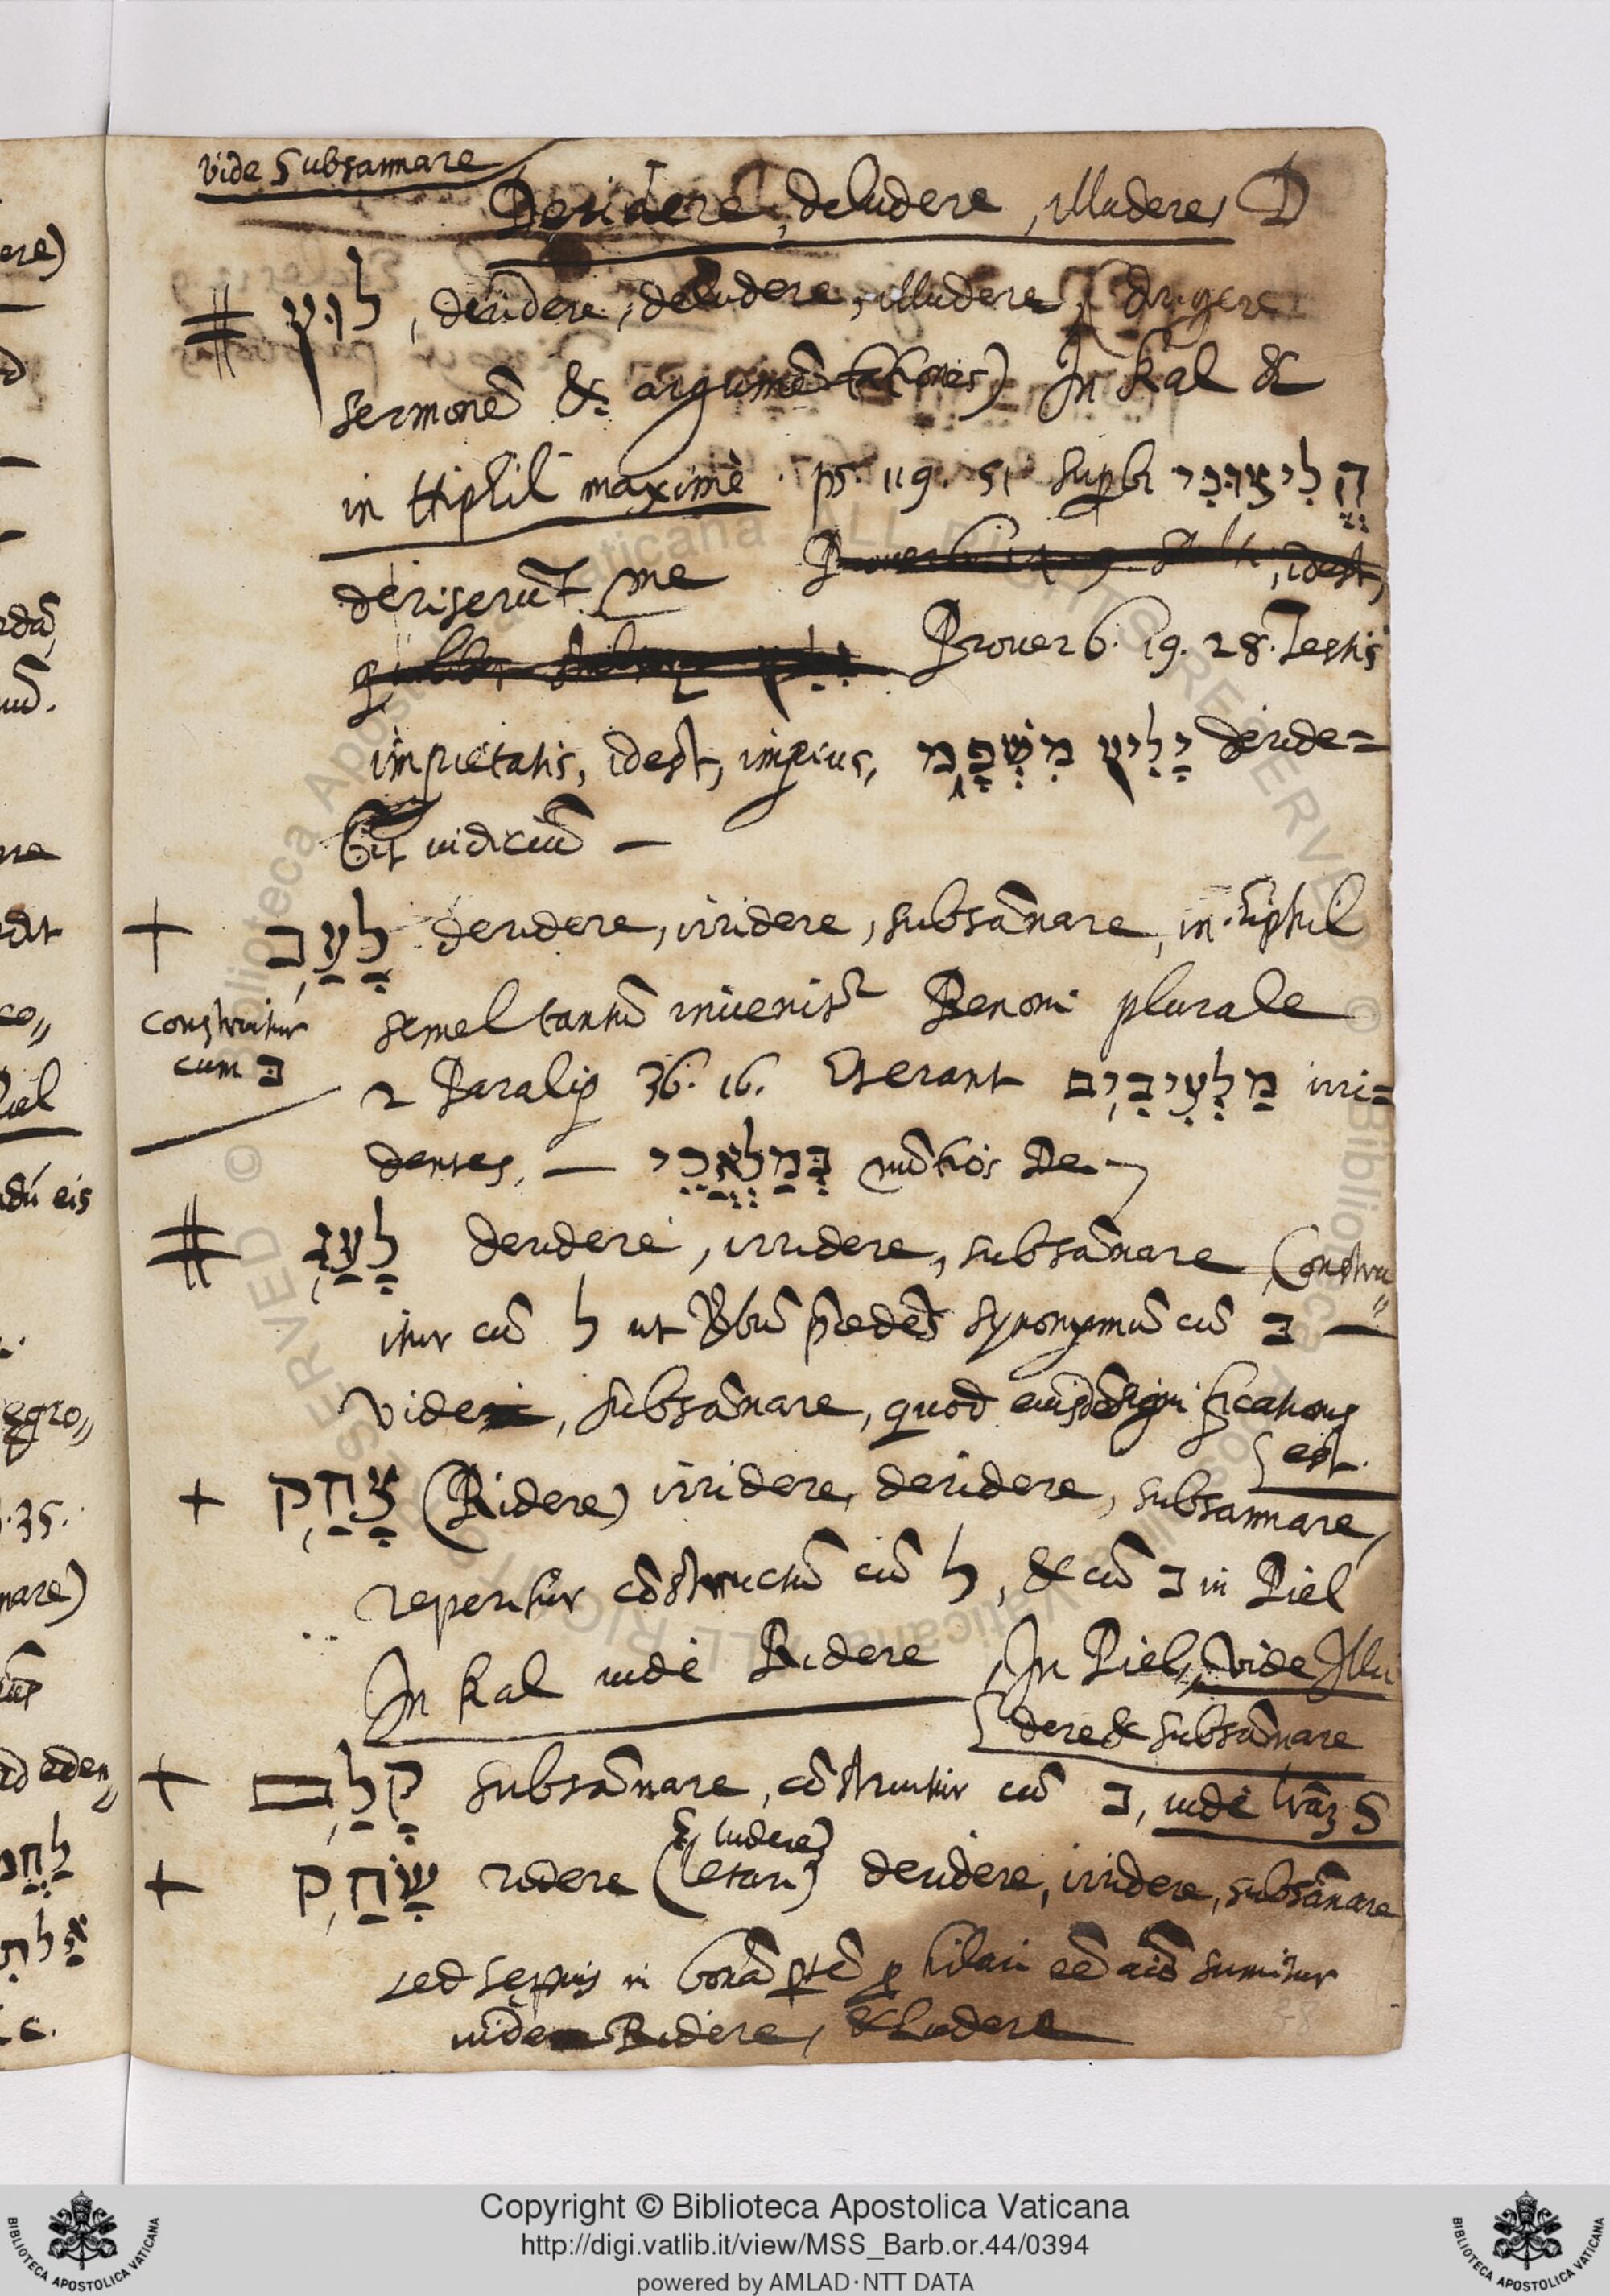 vide Subsannare
Deridere, deludere, illudere, D
לוּץ, deridere, deludere, illudere, (dirigere
sermonẽ & argumẽtationes) In Kal &
in Hiphil maximè. ps. 119. 51 supbi הֱלִיצוּנִי
deriserũt me
Proverb. 19. 28. Testis
impietatis, idest, impius, יָלִיץ מִשְׁפָּט deride=
bit iudiciũ —
לָעַב deridere, irridere, subsãnare, in hiphil
construitur
cum בּ
semel tantũ invenitr Benoni plurale
2 Paralip 36. 16. Et erant מַלְעִיבִים irri=
dentes, — בְּמַלְאֲכֵי nũtios Dei
לָעַג deridere, irridere, subsãnare, Constru
itur cũ ל ut Vbũ prcedẽs synonymũ cũ ב —
vide, subsãnare, quod eiusdẽ significationis
est.
צָחַק (Ridere) irridere, deridere, subsannare,
reperitur cõstructũ cũ ל, & cũ ב in Piel
In Kal vide Ridere, In Piel, vide Illu
dere & subsãnare
קָלַס subsãnare, cõstruitur cũ ב, vide lrãz S
& ludere
שָׂחַק ridere (letari) deridere, irridere, subsãnare
sed sepius in bonã ptẽ p hilari eẽ aiõ sumitur
vide Ridere, & Ludere
Copyright © Biblioteca Apostolica Vaticana
http://digi.vatlib.it/view/MSS_Barb.or.44/0394
powered by AMLAD·NTT DATA
BIBLIOTECA APOSTOLICA VATICANA
BIBLIOTECA APOSTOLICA VATICANA